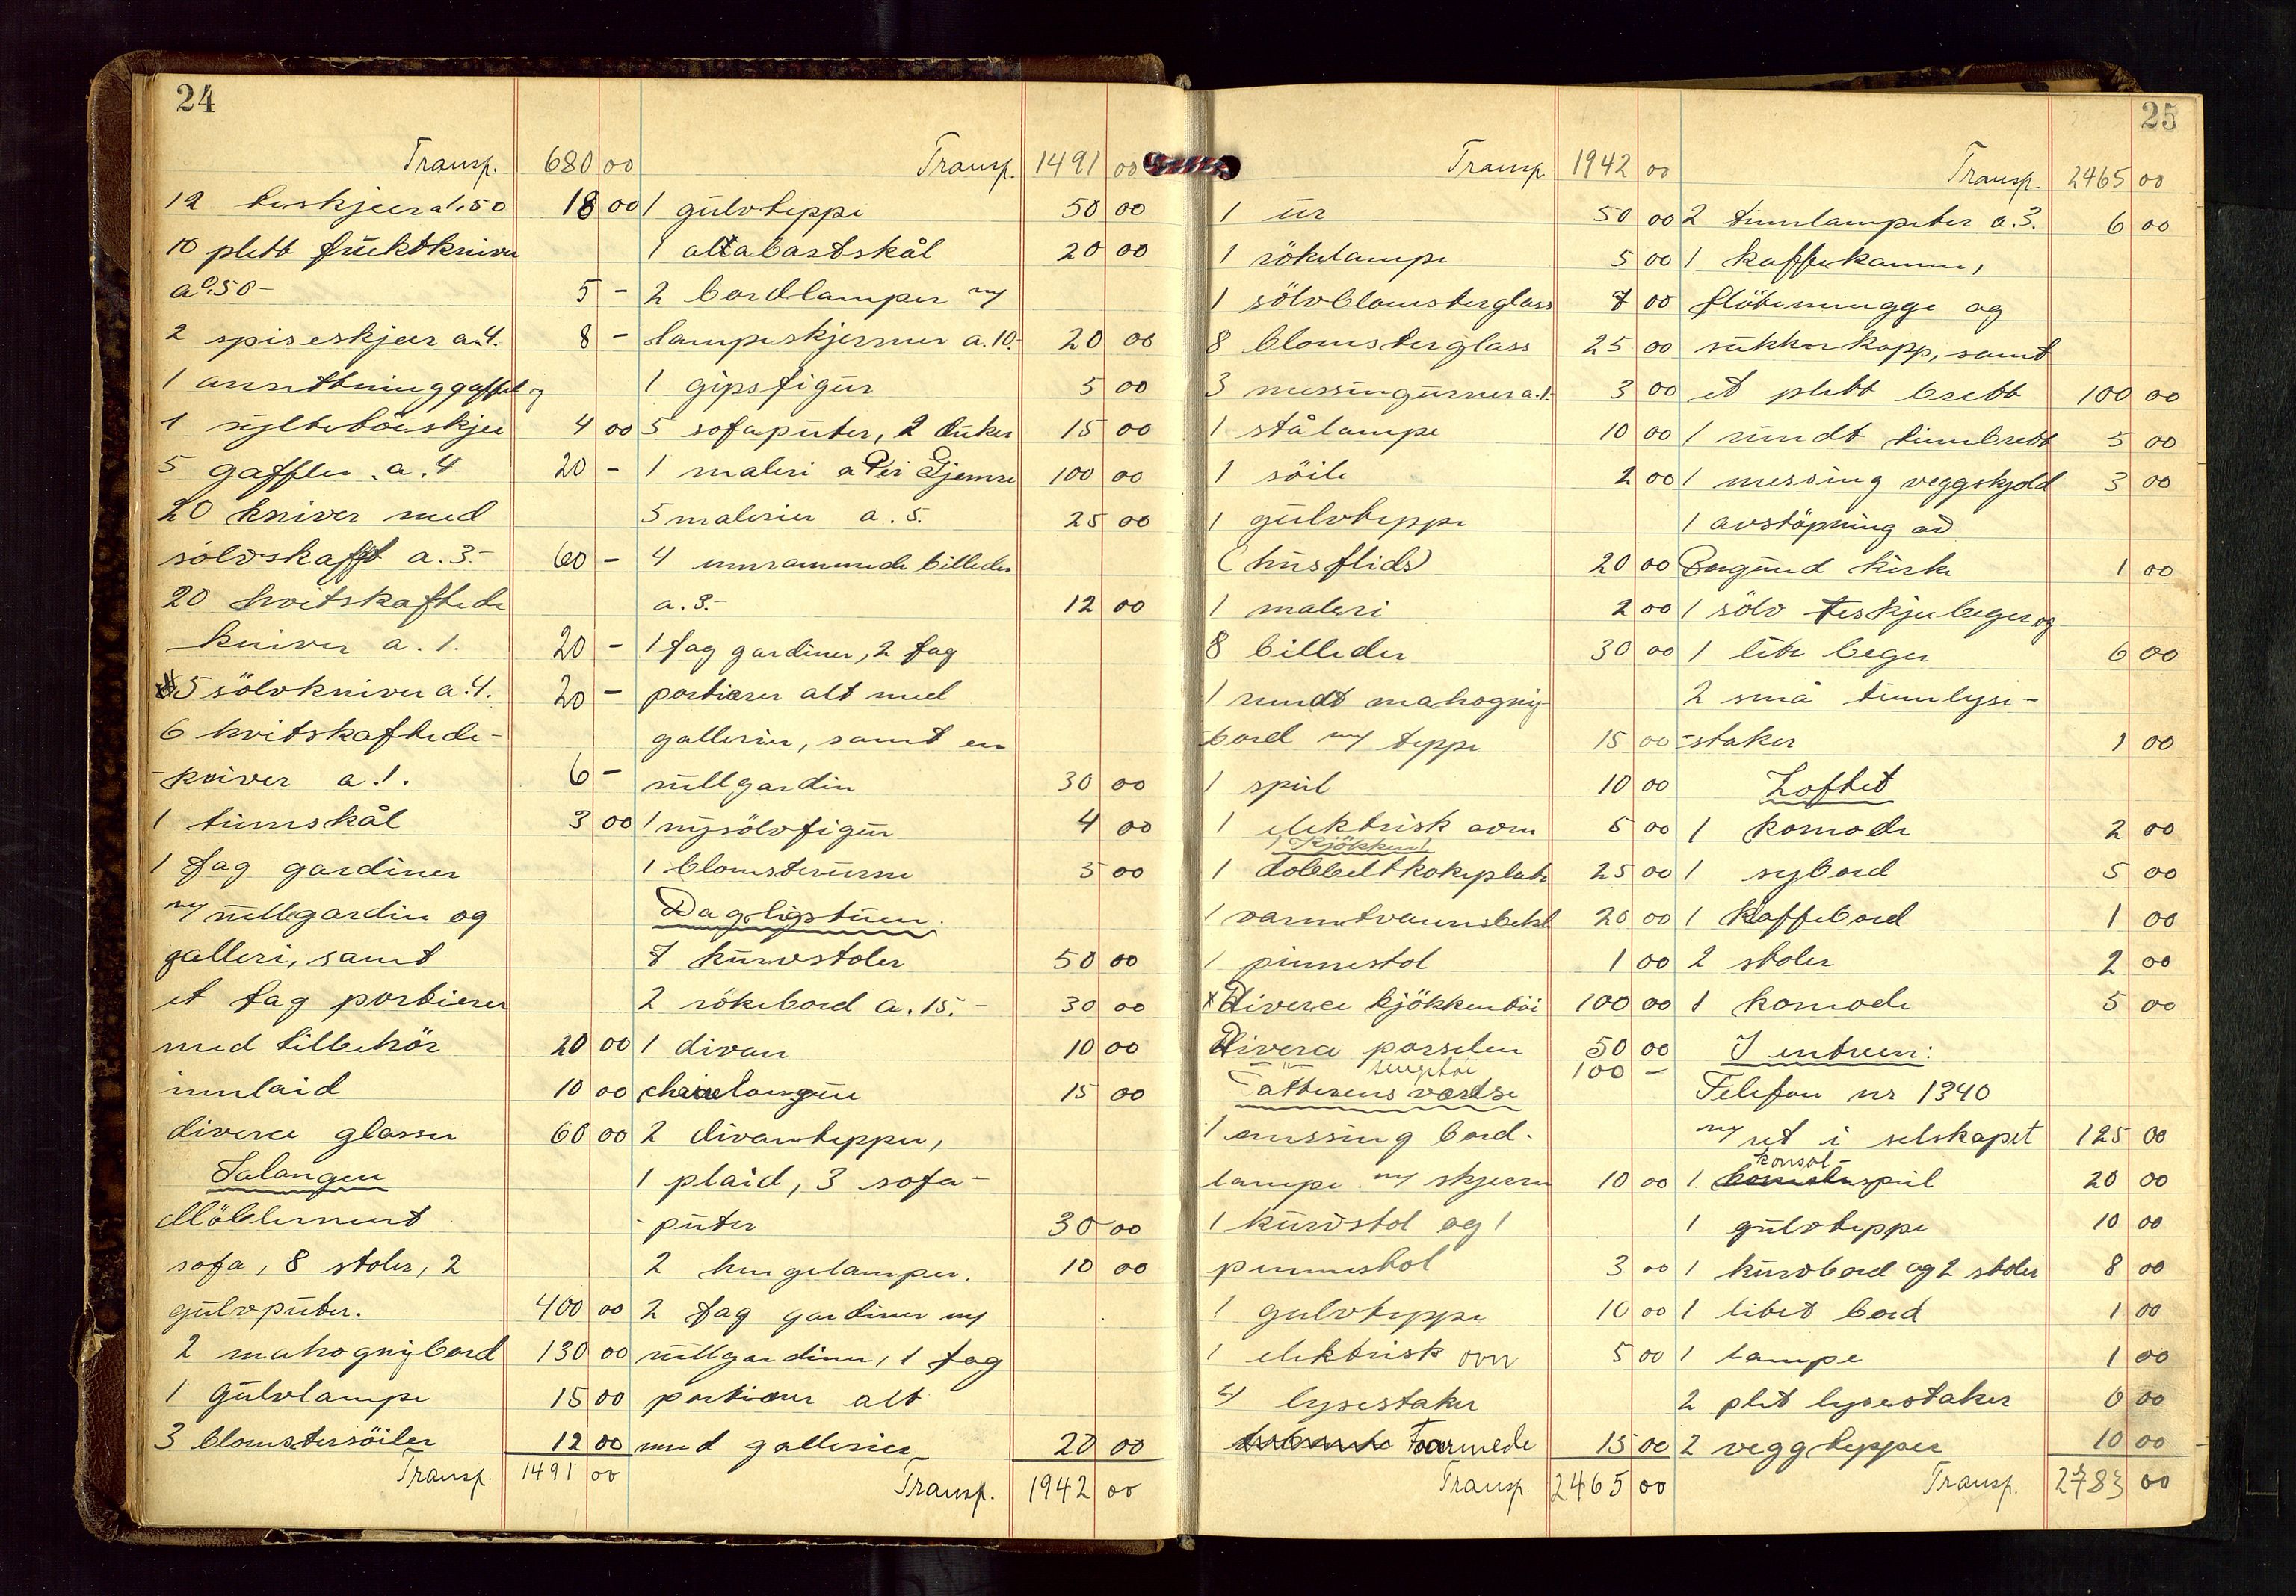 24
Transp. 680 00
12 teskjeer a 1.50 18 00
10 plett fruktkniver
a 0.50 - 5 -
2 spiseskjeer a 4. 8 -
1 anrettninggaffel og
1 syltetöiskjee 4 00
5 gaffler a. 4 20 -
20 kniver med
sölvskaft a. 3.- 60 -
20 hvitskaftede
kniver a. 1. 20 -
5 sölvkniver a. 4. 20 -
6 hvitskaftede -
- kniver a. 1. 6 -
1 tinnskål 3 00
1 fag gardiner
m/ rullgardin og
galleri, samt
et fag portierer
med tilbehör 20 00
innlaid 10 00
diverce glasser 60 00
Salongen
Möblement
sofa, 8 stoler, 2
gulvputer. 400 00
2 mahognybord 130 00
1 gulvlampe 15 00
3 blomstersöiler 12 00
Transp. 1491 00
Transp. 1491 00
1 gulvteppe 50 00
1 altabastskål 20 00
2 bordlamper m/
lampeskjermer a. 10. 20 00
1 gipsfigur 5 00
5 sofaputer, 2 duker 15 00
1 maleri a Per Gjemre 100 00
5 malerier a. 5. 25 00
4 innrammede billeder
a. 3.- 12 00
1 fag gardiner, 2 fag
portierer alt med
gallerier, samt en
rullgardin 30 00
1 nysölvfigur 4 00
1 blomsterurne 5 00
Dagligstuen.
7 kurvstoler 50 00
2 rökebord a. 15. - 30 00
1 divan 10 00
chaiselongue 15 00
2 divantepper,
1 plaid, 3 sofa -
- puter 30 00
2 hengelamper. 10 00
2 fag gardiner m/
rullgardiner, 1 fag
portierer alt
med gallerier 20 00
Transp. 1942 00
25
Transp. 1942 00
1 ur 50 00
1 rökelampe 5 00
1 sölvblomsterglass 7 00
8 blomsterglass 25 00
3 messingurner a. 1. 3 00
1 stålampe 10 00
1 söile 2 00
1 gulvteppe
(husflids) 20 00
1 maleri 2 00
8 billeder 30 00
1 rundt mahogny-
- bord m/ teppe 15 00
1 speil 10 00
1 elektrisk ovn 5 00
Kjökkenet
1 dobbeltkokeplate 25 00
1 varmtvannsbehl 20 00
1 pinnestol 1 00
Diverce kjökkentöi 100 00
Diverce porselen 50 00
" sengetöi 100 -
Datterens værelse
1 messing bord-
lampe m/ skjerm 10 00
1 kurvstol og 1
pinnestol 3 00
1 gulvteppe 10 00
1 elektrisk ovn 5 00
4 lysestaker
Foarmede 15 00
Transp. 2465 00
Transp. 2465 00
2 tinnlampeter a. 3. 6 00
1 kaffekanne,
flötemugge og
sukkerkopp, samt
et plett brett 100 00
1 rundt tinnbrett 5 00
1 messing veggskjold 3 00
1 avstöpning av
Borgund kirke 1 00
1 sölv teskjebeger og
1 lite beger 6 00
2 små tinnlyse -
- staker 1 00
Loftet
1 komode 2 00
1 sybord 5 00
1 kaffebord 1 00
2 stoler 2 00
1 komode 5 00
I entreen:
Telefon nr 1340
m/ ret i selskapet 125 00
1 konsol-speil 20 00
1 gulvteppe 10 00
1 kurvbord og 2 stoler 8 00
1 litet bord 1 00
1 lampe 1 00
2 plet lysestaker 6 00
2 veggtepper 10 00
Transp. 2783 00